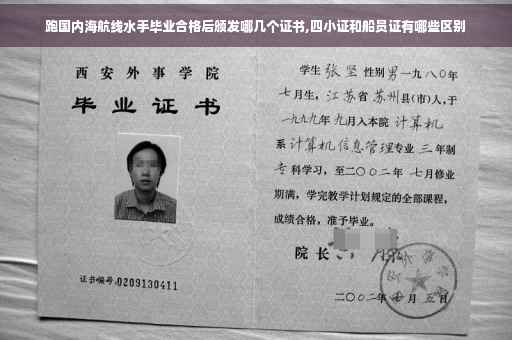 跑国内海航线水手毕业合格后颁发哪几个证书,四小证和船员证有哪些区别
西安外事学院
毕业证书
证书编号:0209130411
学生 张坚 性别 男 一九八〇年
七月生，江苏省 苏州县(市)人，于
一九九九年 九月入本院 计算机
系 计算机信息管理专业 三 年制
专 科学习，至二〇〇二年 七月修业
期满，学完教学计划规定的全部课程，
成绩合格，准予毕业。
院长
二〇〇二年 月 五日